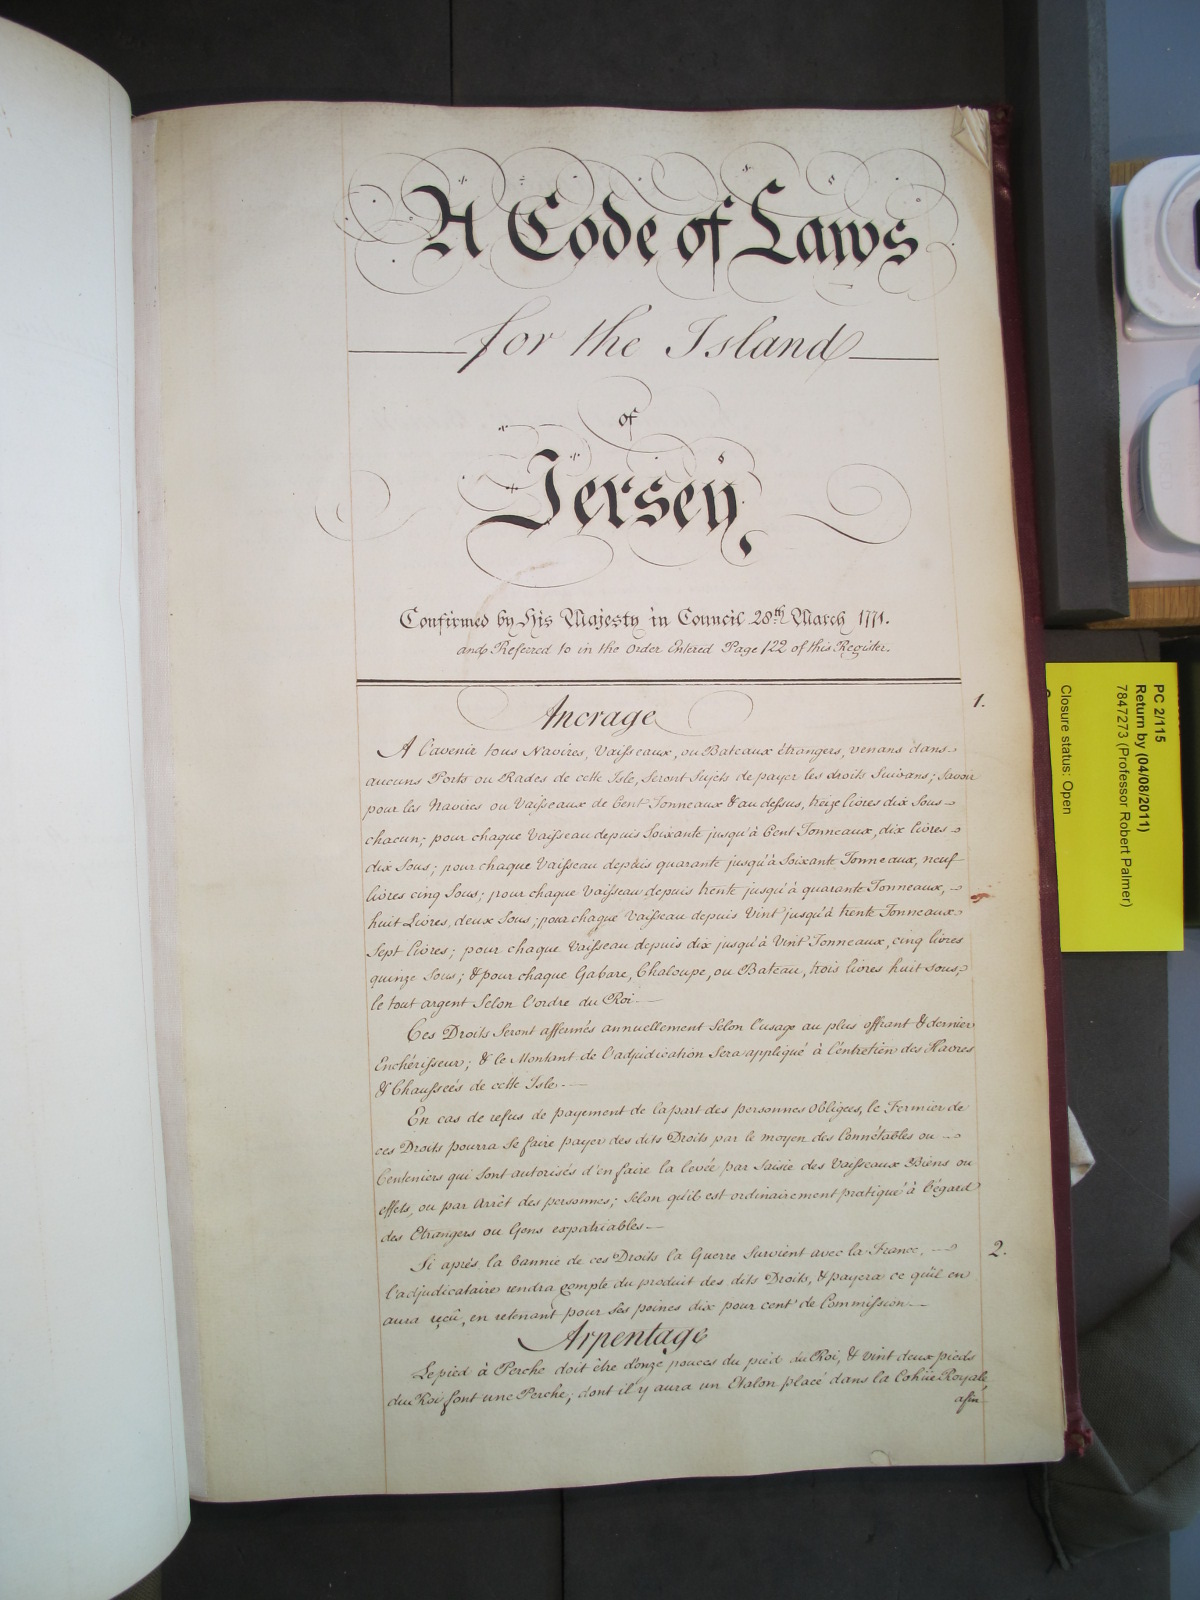 A Code of Laws
for the Island
of
Jersey
Confirmed by His Majesty in Council 28th March 1771.
and Referred to in the Order Entered Page 122 of this Register.
Ancrage
1.
A l'avenir tous Navires, Vaisseaux, ou Bateaux étrangers, venans dans
aucuns Ports ou Rades de cette Isle, seront sujets de payer les droits Suivans; savoir
pour les Navires ou Vaisseaux de Cent Tonneaux & au dessus, treize livres dix Sous
chacun; pour chaque Vaisseau depuis Soixante jusqu'à Cent Tonneaux, dix livres
dix Sous; pour chaque Vaisseau depuis quarante jusqu'à Soixante Tonneaux, neuf
livres cinq Sous; pour chaque Vaisseau depuis trente jusqu'à quarante Tonneaux,
huit Livres, deux Sous; pour chaque Vaisseau depuis Vint jusqu'à trente Tonneaux
Sept livres; pour chaque Vaisseau depuis dix jusqu'à Vint Tonneaux, cinq livres
quinze Sous; & pour chaque Gabare, Chaloupe, ou Bateau, trois livres huit sous;
le tout argent Selon l'ordre du Roi.
Ces Droits Seront affermés annuellement Selon l'usage au plus offrant & dernier
Enchérisseur; & le Montant de l'adjudication Sera appliqué à l'entretien des Havres
& Chaussées de cette Isle.
En cas de refus de payement de la part des personnes Obligées, le Fermier de
ces Droits pourra Se faire payer des dits Droits par le moyen des Connétables ou
Centeniers qui Sont autorisés d'en faire la levée par Saisie des Vaisseaux Biens ou
effets, ou par Arrêt des personnes; Selon qu'il est ordinairement pratiqué à l'égard
des Etrangers ou Gens expatriables.
2.
Si après la bannie de ces Droits la Guerre Survient avec la France,
l'adjudicataire rendra compte du produit des dits Droits, & payera ce qu'il en
aura reçû, en retenant pour Ses peines dix pour cent de Commission.
Arpentage
Le pied à Perche doit être d'onze pouces du pied du Roi, & vint deux pieds
du Roi font une Perche; dont il y aura un Etalon placé dans la Cohüe Royale
afin
PC 2/115
Return by (04/08/2011)
7847273 (Professor Robert Palmer)
Closure status: Open